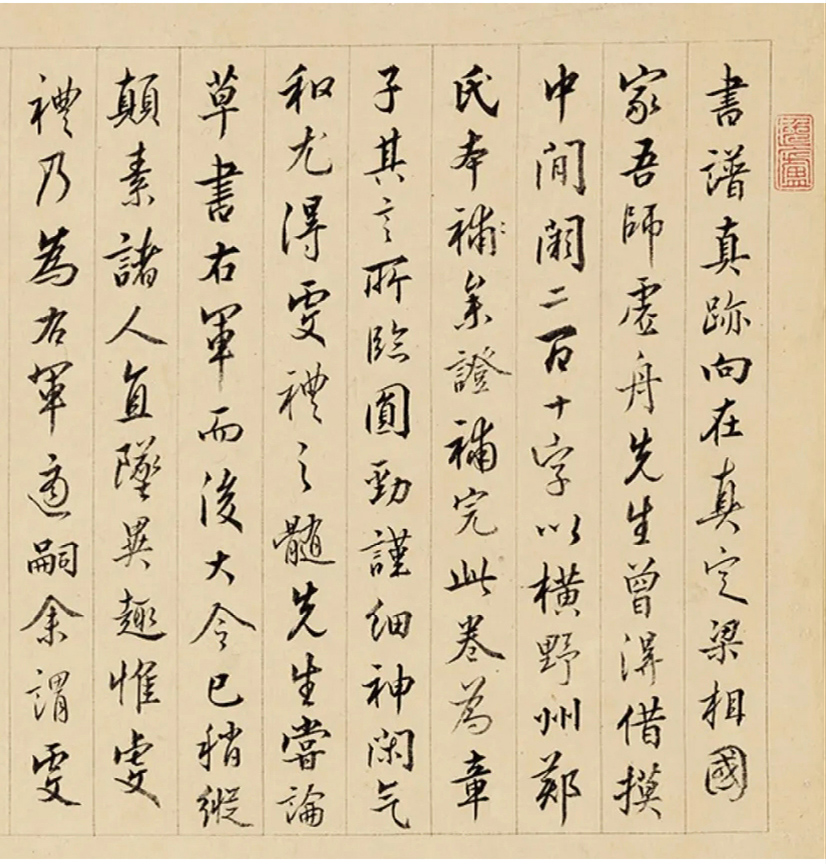 書譜真跡向在真定梁相國
家吾師虛舟先生曾淂借摸
中間闕二百十字以橫野州鄭
氏本補叅證補完此卷為章
子其言所臨圓勁謹細神閑气
和尤淂虔禮之髓先生嘗論
草書右軍而後大令已稍縱
顛素諸人直墜異趣惟虔
禮乃為右軍適嗣余謂虔